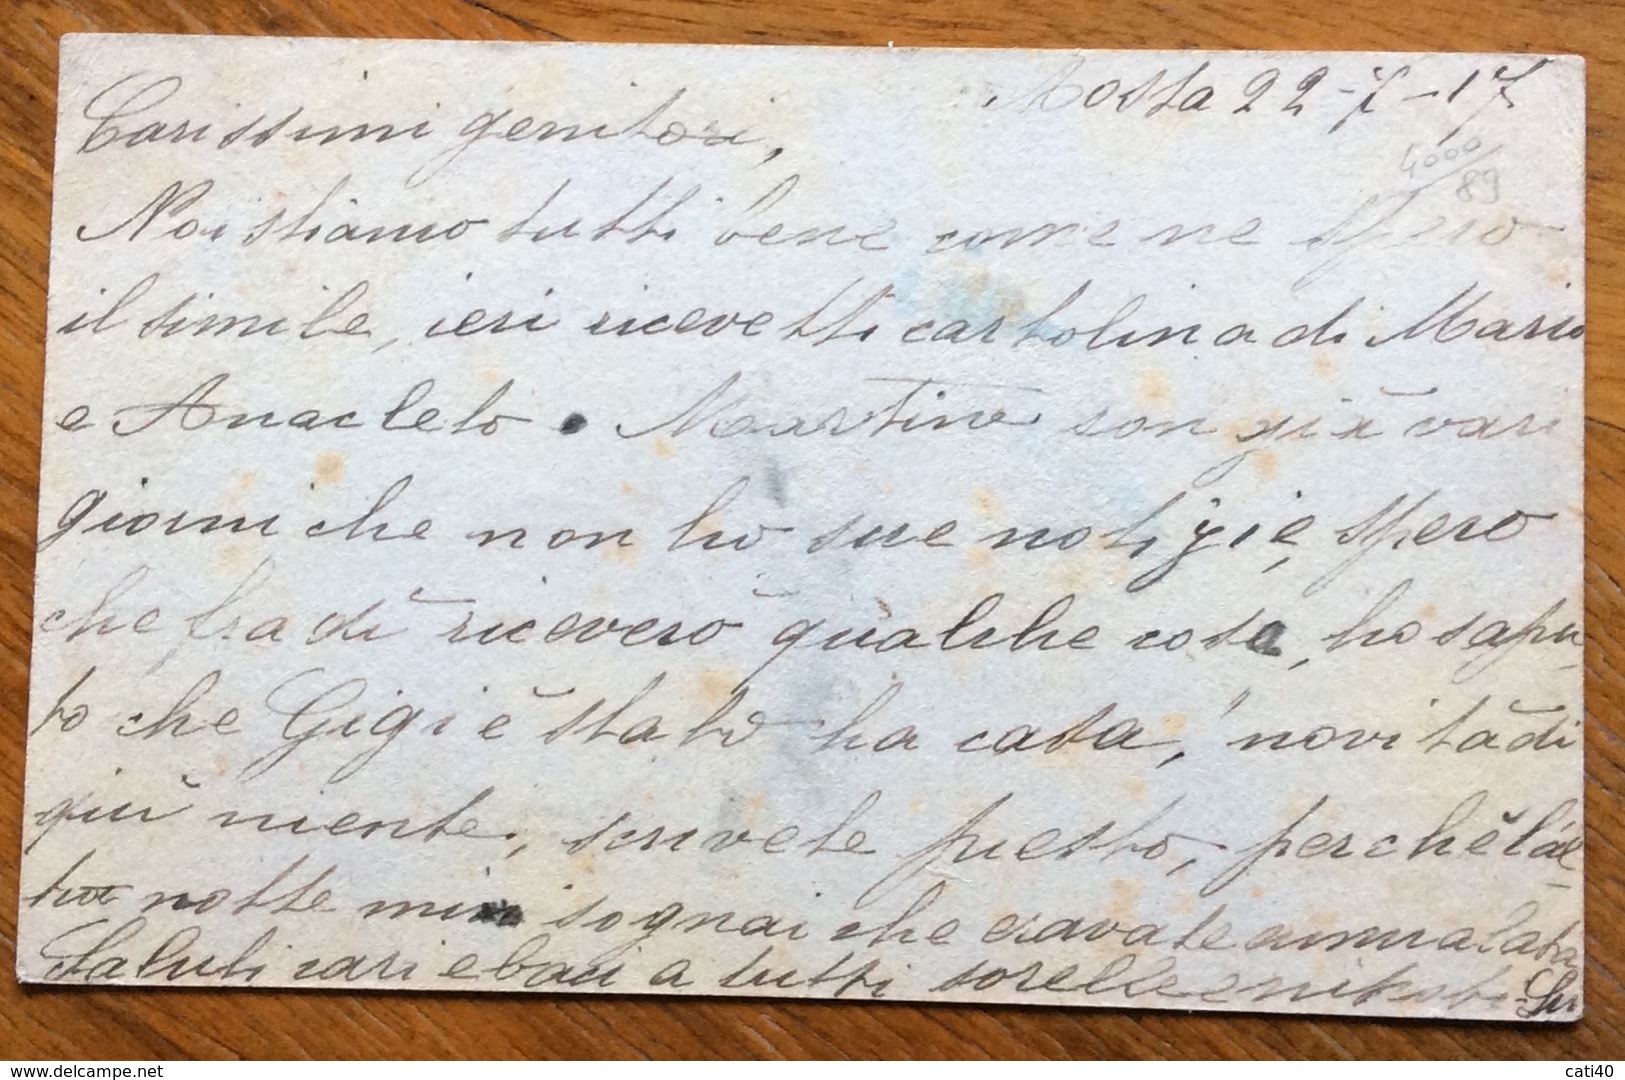 Aosta 22-7-17
Carissimi genitori,
4000
89
Noi stiamo tutti bene come ne spero
il simile, ieri ricevetti cartolina di Mario
e Anacleto. Martino son già vari
giorni che non ho sue notizie, spero
che fra dì riceverò qualche cosa, ho sapu
to che Gigi è stato ha casa, novità di
più niente, scrivete presto, perchè l'al-
tra notte mi sognai che eravate ammalata
Saluti cari e baci a tutti sorelle e nipoti
www.delcampe.net
cati40